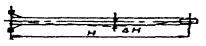 H ΔH